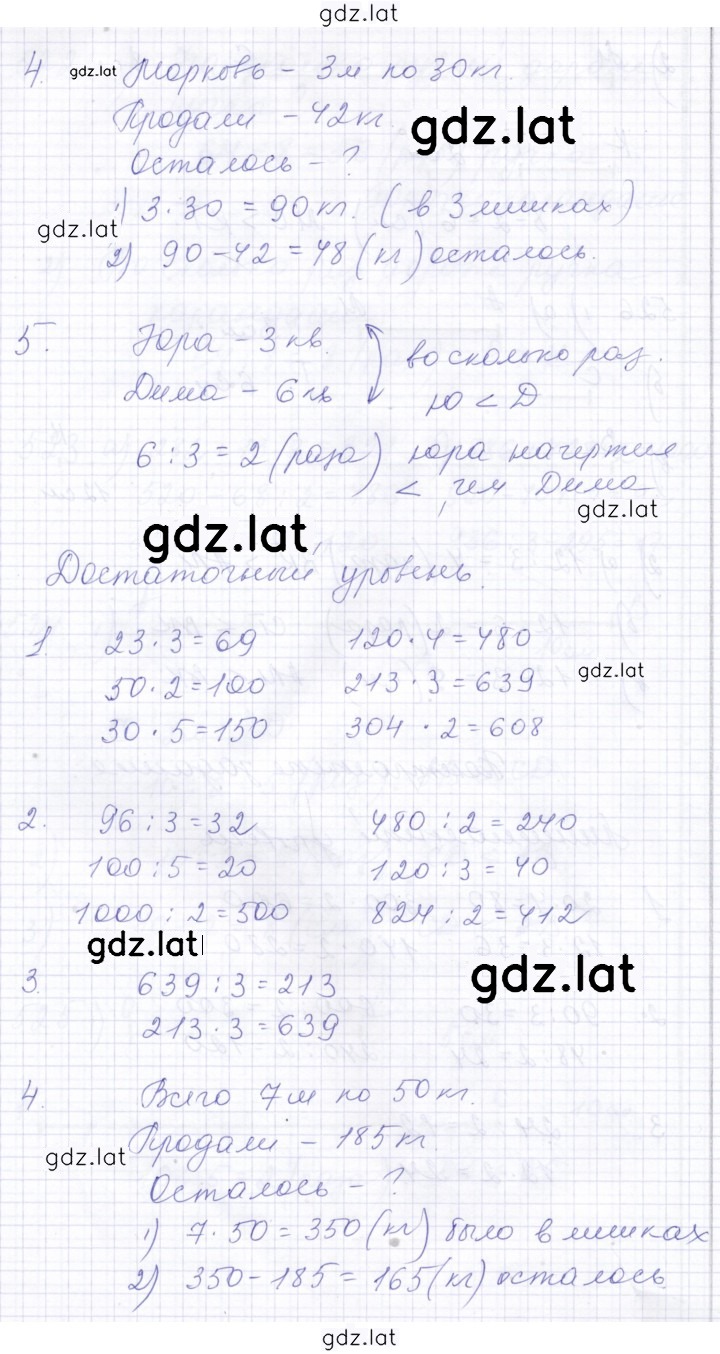 gdz.lat
4. gdz.lat Морковь - 3м по 30кг.
Продали - 42кг.
gdz.lat
Осталось - ?
1) 3·30 = 90кг. (в 3 мишках)
gdz.lat
2) 90-42 = 48 (кг) осталось.
5. Юра - 3 кв. во сколько раз.
Дима - 6 ю < Д
6 : 3 = 2 (раза) юра начертил
< , чем Дима
gdz.lat
gdz.lat
Достаточный уровень.
1. 23·3=69 120·4=480
gdz.lat
50·2=100 213·3=639
30·5=150 304·2=608
2. 96:3=32 480:2=240
100:5=20 120:3=40
1000:2=500 824:2=412
gdz.lat
3. 639:3=213
gdz.lat
213·3=639
4. Всего 7м по 50кг.
Продали - 185кг.
gdz.lat
Осталось - ?
1) 7·50=350(кг) было в мишках
2) 350-185=165(кг) осталось
gdz.lat